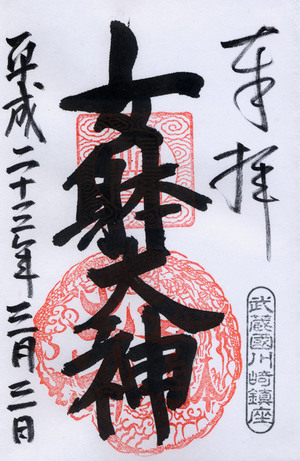 奉拝
武蔵國川崎鎮座
女躰大神
平成二十三年三月二日